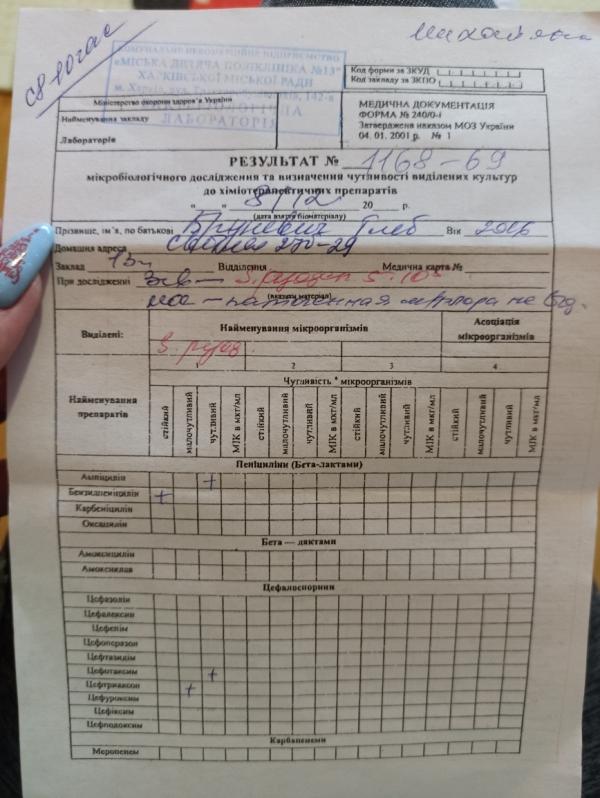 КОМУНАЛЬНЕ НЕКОМЕРЦІЙНЕ ПІДПРИЄМСТВО
«МІСЬКА ДИТЯЧА ПОЛІКЛІНІКА №13»
ХАРКІВСЬКОЇ МІСЬКОЇ РАДИ
м. Харків, вул. 142-а
ЛАБОРАТОРІЯ
Код форми за ЗКУД
Код закладу за ЗКПО
Міністерство охорони здоров'я України
Найменування закладу
Лабораторія
МЕДИЧНА ДОКУМЕНТАЦІЯ
ФОРМА № 240/0-і
Затверджена наказом МОЗ України
04. 01. 2001 р. № 1
РЕЗУЛЬТАТ № 1168-69
мікробіологічного дослідження та визначення чутливості виділених культур
до хіміотерапевтичних препаратів
" " 8/12 20 р.
(дата взяття біоматеріалу)
Прізвище, ім'я, по батькові Глеб Вік 2016
Домашня адреса 270-29
Заклад 13 Відділення Медична карта №
При дослідженні Зев —
(вказати матеріал)
нос — патогенная м/флора не
Виділені:
Найменування мікроорганізмів
Асоціація мікроорганізмів
2 3 4
Найменування препаратів
Чутливість * мікроорганізмів
стійкий малочутливий чутливий МІК в мкг/мл стійкий малочутливий чутливий МІК в мкг/мл стійкий малочутливий чутливий МІК в мкг/мл стійкий малочутливий чутливий МІК в мкг/мл
Пеніциліни (Бета-лактами)
Ампіцилін +
Бензилпеніцилін +
Карбеніцилін
Оксацилін
Бета — лактами
Амоксицилін
Амоксиклав
Цефалоспорини
Цефазолін
Цефалексин
Цефепім
Цефоперазон
Цефтазидім
Цефотаксим +
Цефтриаксон +
Цефуроксим
Цефіксим
Цефподоксим
Карбапенеми
Меропенем